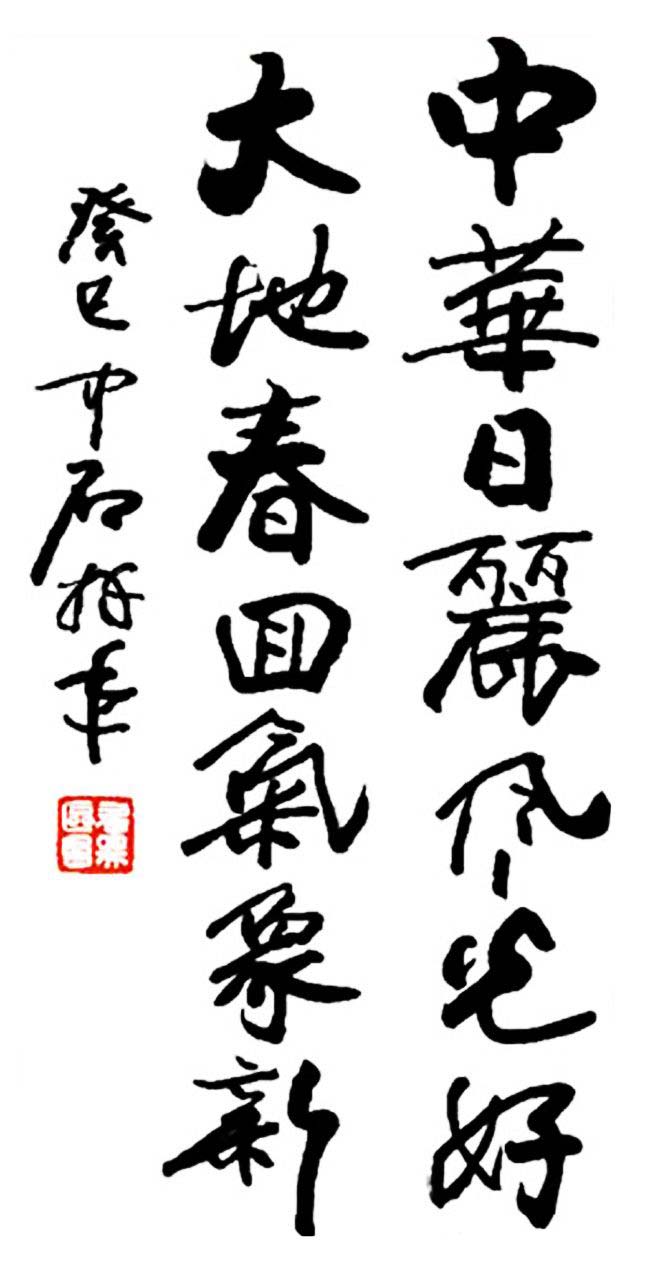 中華日麗風光好
大地春回氣象新
癸巳中石拜年